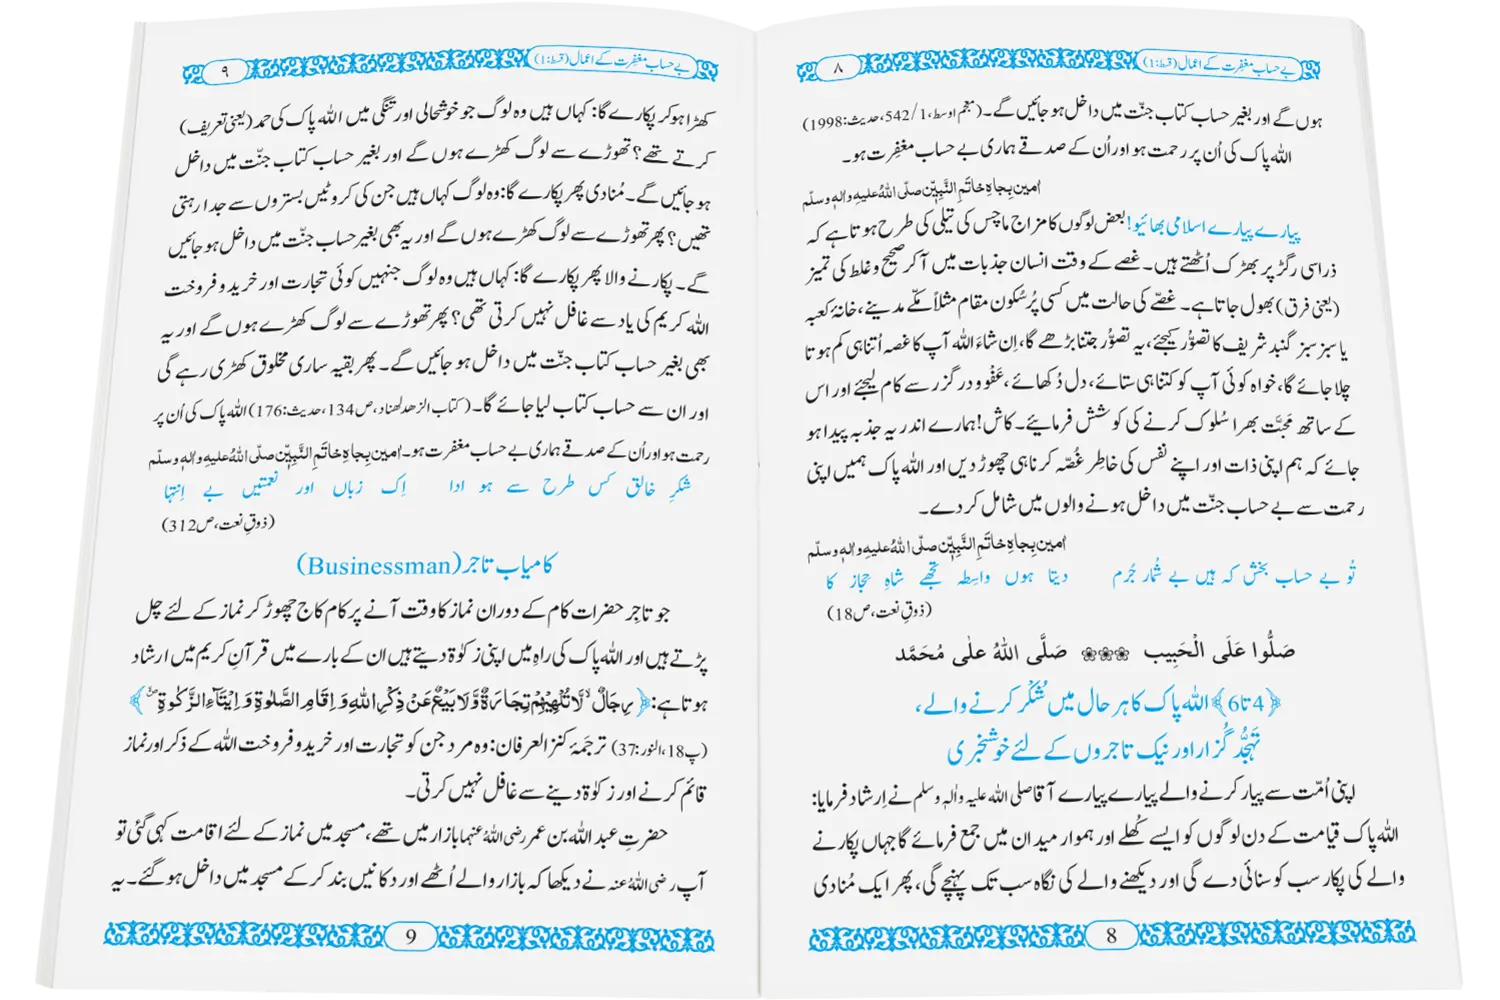 بے حساب مغفرت کے اعمال (قسط:1)
۸
ہوں گے اور بغیر حساب کتاب جنّت میں داخل ہو جائیں گے۔(معجم اوسط،1/542،حدیث:1998)
اللہ پاک کی اُن پر رحمت ہو اور اُن کے صدقے ہماری بے حساب مغفِرت ہو۔
اٰمین بِجاہِ خاتَمِ النَّبِیّٖن صلّی اللہُ علیهِ واٰلهٖ وسلّم
پیارے پیارے اسلامی بھائیو! بعض لوگوں کا مزاج ماچس کی تیلی کی طرح ہوتا ہے کہ
ذرا سی رگڑ پر بھڑک اُٹھتے ہیں۔ غصے کے وقت انسان جذبات میں آ کر صحیح و غلط کی تمیز
(یعنی فرق) بھول جاتا ہے۔ غصّے کی حالت میں کسی پُر سُکون مقام مثلاً مکّے مدینے، خانۂ کعبہ
یا سبز سبز گنبد شریف کا تصوُّر کیجئے، یہ تصوُّر جتنا بڑھے گا، اِن شاءَ اللہ آپ کا غصہ اُتنا ہی کم ہوتا
چلا جائے گا، خواہ کوئی آپ کو کتنا ہی ستائے، دل دُکھائے، عَفْو و درگزر سے کام لیجئے اور اس
کے ساتھ مَحبَّت بھرا سُلوک کرنے کی کوشش فرمائیے۔ کاش! ہمارے اندر یہ جذبہ پیدا ہو
جائے کہ ہم اپنی ذات اور اپنے نفس کی خاطِر غُصّہ کرنا ہی چھوڑ دیں اور اللہ پاک ہمیں اپنی
رحمت سے بے حساب جنّت میں داخل ہونے والوں میں شامل کر دے۔
اٰمین بِجاہِ خاتَمِ النَّبِیّٖن صلّی اللہُ علیهِ واٰلهٖ وسلّم
تُو بے حساب بخش کہ ہیں بے شُمار جُرم دیتا ہوں واسِطہ تجھے شاہِ حِجاز کا
(ذوقِ نعت،ص18)
صَلُّوا عَلَی الْحَبِیب صَلَّی اللهُ عَلٰی مُحَمَّد
﴿4 تا 6﴾ اللہ پاک کا ہر حال میں شُکْر کرنے والے،
تَہَجُّد گُزار اور نیک تاجروں کے لئے خوشخبری
اپنی اُمّت سے پیار کرنے والے پیارے پیارے آقا صلی اللہ علیہ واٰلہٖ وسلم نے اِرشاد فرمایا:
اللہ پاک قِیامت کے دن لوگوں کو ایسے کُھلے اور ہموار میدان میں جمع فرمائے گا جہاں پکارنے
والے کی پکار سب کو سنائی دے گی اور دیکھنے والے کی نگاہ سب تک پہنچے گی، پھر ایک مُنادی
8
بے حساب مغفرت کے اعمال (قسط:1)
۹
کھڑا ہو کر پکارے گا: کہاں ہیں وہ لوگ جو خوشحالی اور تنگی میں اللہ پاک کی حمد (یعنی تعریف)
کرتے تھے؟ تھوڑے سے لوگ کھڑے ہوں گے اور بغیر حساب کتاب جنّت میں داخل
ہو جائیں گے۔ مُنادی پھر پکارے گا: وہ لوگ کہاں ہیں جن کی کروٹیں بستروں سے جدا رہتی
تھیں؟ پھر تھوڑے سے لوگ کھڑے ہوں گے اور یہ بھی بغیر حساب جنّت میں داخل ہو جائیں
گے۔ پکارنے والا پھر پکارے گا: کہاں ہیں وہ لوگ جنہیں کوئی تجارت اور خرید و فروخت
اللہ کریم کی یاد سے غافل نہیں کرتی تھی؟ پھر تھوڑے سے لوگ کھڑے ہوں گے اور یہ
بھی بغیر حساب کتاب جنّت میں داخل ہو جائیں گے۔ پھر بقیہ ساری مخلوق کھڑی رہے گی
اور ان سے حساب کتاب لیا جائے گا۔ (کتاب الزھد لھناد،ص134،حدیث:176) اللہ پاک کی اُن پر
رحمت ہو اور اُن کے صدقے ہماری بے حساب مغفرت ہو۔ اٰمین بِجاہِ خاتَمِ النَّبِیّٖن صلّی اللہُ علیهِ واٰلهٖ وسلّم
شکرِ خالق کس طرح سے ہو ادا اِک زباں اور نعمتیں بے اِنتہا
(ذوقِ نعت،ص312)
کامیاب تاجر (Businessman)
جو تاجِر حضرات کام کے دوران نماز کا وقت آنے پر کام کاج چھوڑ کر نماز کے لئے چل
پڑتے ہیں اور اللہ پاک کی راہ میں اپنی زکوٰۃ دیتے ہیں ان کے بارے میں قرآنِ کریم میں ارشاد
ہوتا ہے: ﴿رِجَالٌۙ لَّا تُلْهِیْهِمْ تِجَارَةٌ وَّ لَا بَیْعٌ عَنْ ذِكْرِ اللّٰهِ وَ اِقَامِ الصَّلٰوةِ وَ اِیْتَآءِ الزَّكٰوةِ ﴾
(پ18،النور:37) ترجَمۂ کنز العرفان: وہ مرد جن کو تجارت اور خرید و فروخت اللہ کے ذکر اور نماز
قائم کرنے اور زکوٰۃ دینے سے غافل نہیں کرتی۔
حضرتِ عبد اللہ بن عمر رضی اللہُ عنہما بازار میں تھے، مسجد میں نماز کے لئے اقامت کہی گئی تو
آپ رضی اللہُ عنہ نے دیکھا کہ بازار والے اُٹھے اور دکانیں بند کر کے مسجد میں داخل ہو گئے۔ یہ
9